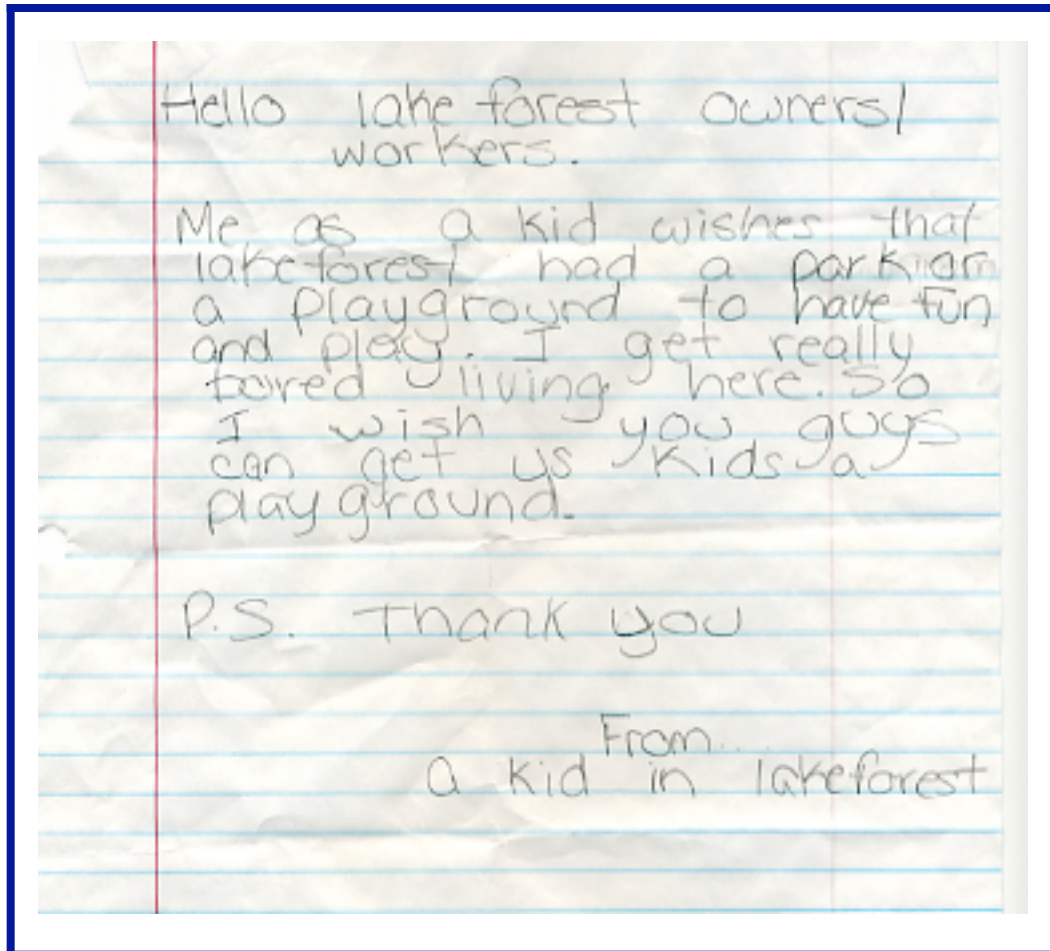 Hello lake forest owners/
workers.
Me as a kid wishes that
lakeforest had a park or
a playground to have fun
and play. I get really
bored living here. So
I wish you guys
can get us kids a
playground.
P.S. Thank you
From...
a kid in lakeforest